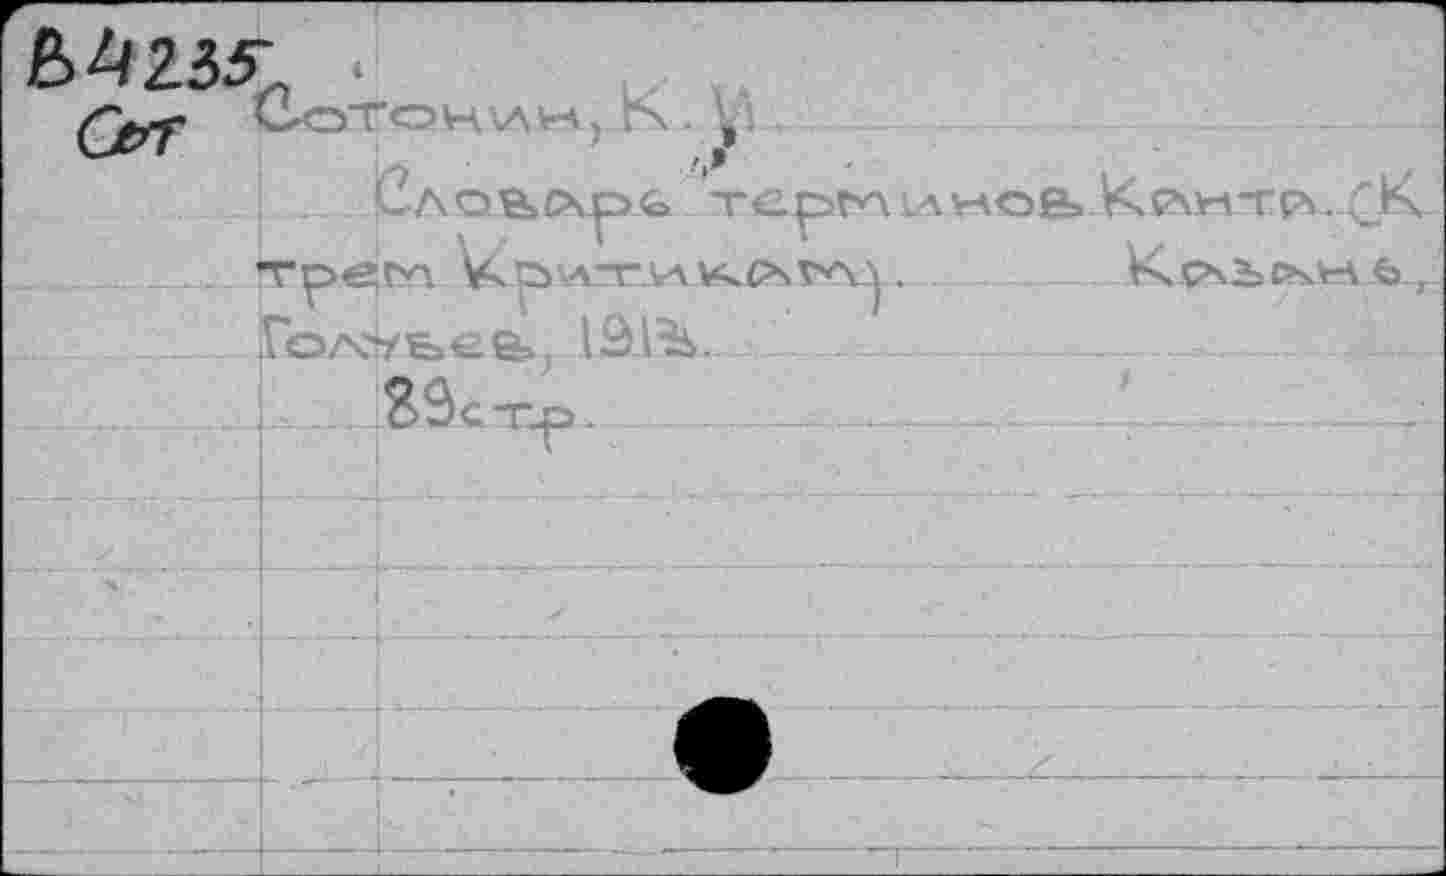 В4235
Сот
Сотонин, К. И.
Словарь терминов Канта. (К
трем критикам). Казань,
Голубев, 1913.
89 стр.